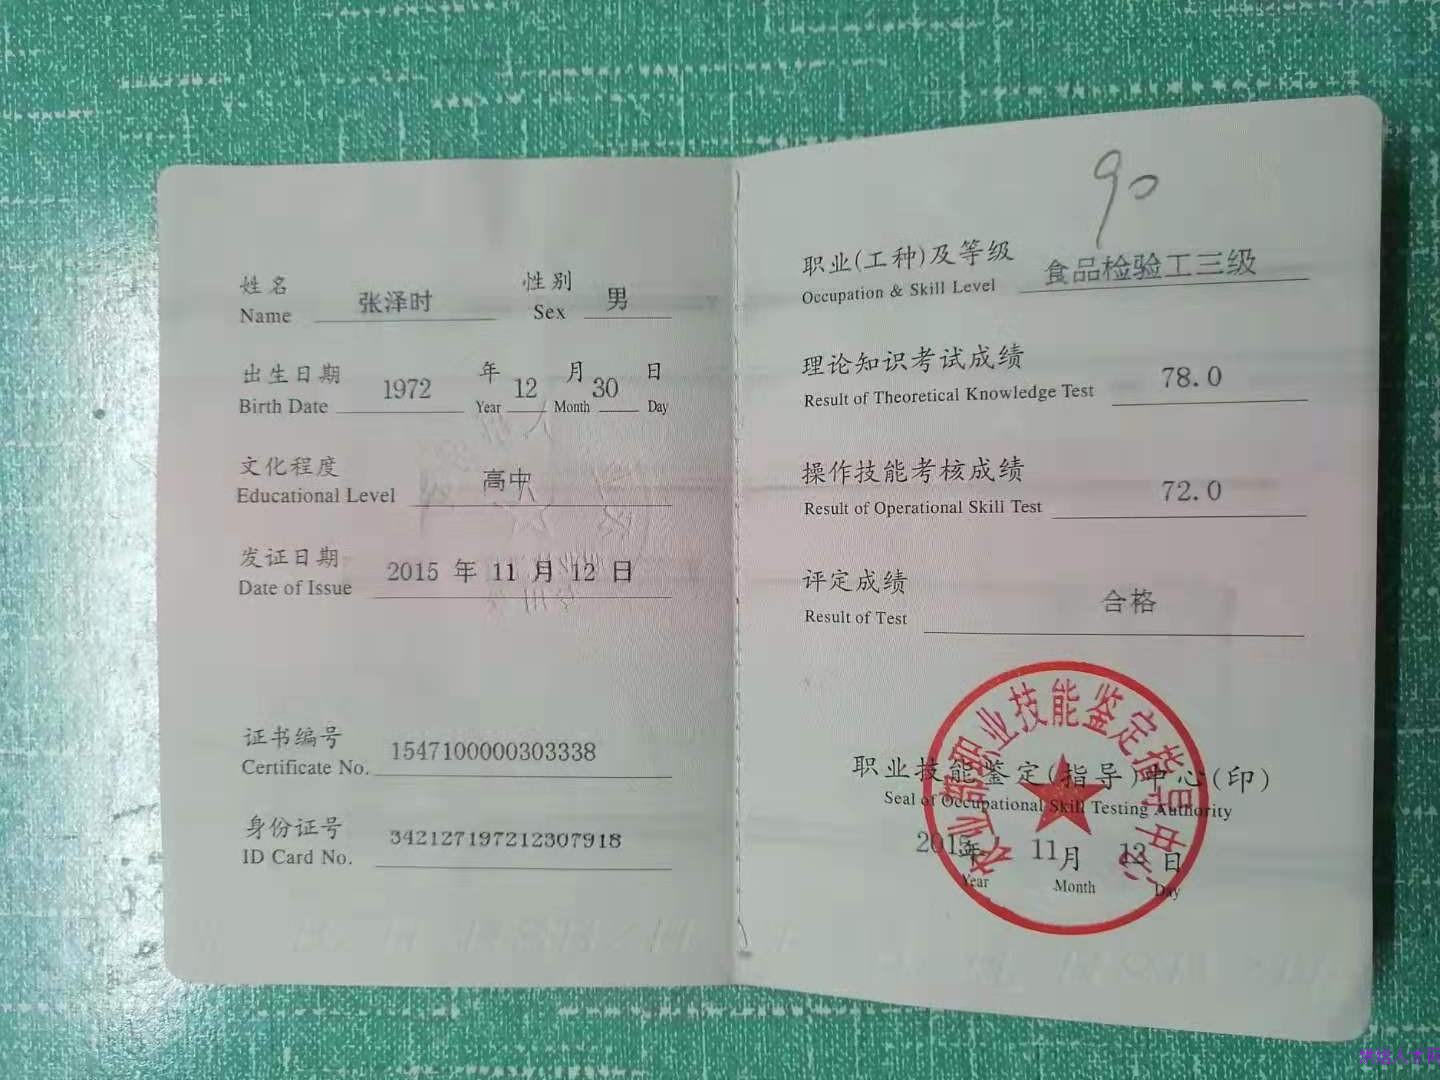 姓名 张泽时 性别 男
Name Sex
出生日期 1972 年 12 月 30 日
Birth Date Year Month Day
文化程度 高中
Educational Level
发证日期 2015 年 11 月 12 日
Date of Issue
证书编号 1547100000303338
Certificate No.
身份证号 342127197212307918
ID Card No.
90
职业(工种)及等级 食品检验工三级
Occupation & Skill Level
理论知识考试成绩 78.0
Result of Theoretical Knowledge Test
操作技能考核成绩 72.0
Result of Operational Skill Test
评定成绩 合格
Result of Test
农业部职业技能鉴定指导中心
职业技能鉴定(指导)中心(印)
Seal of Occupational Skill Testing Authority
2015 年 11 月 12 日
Year Month Day